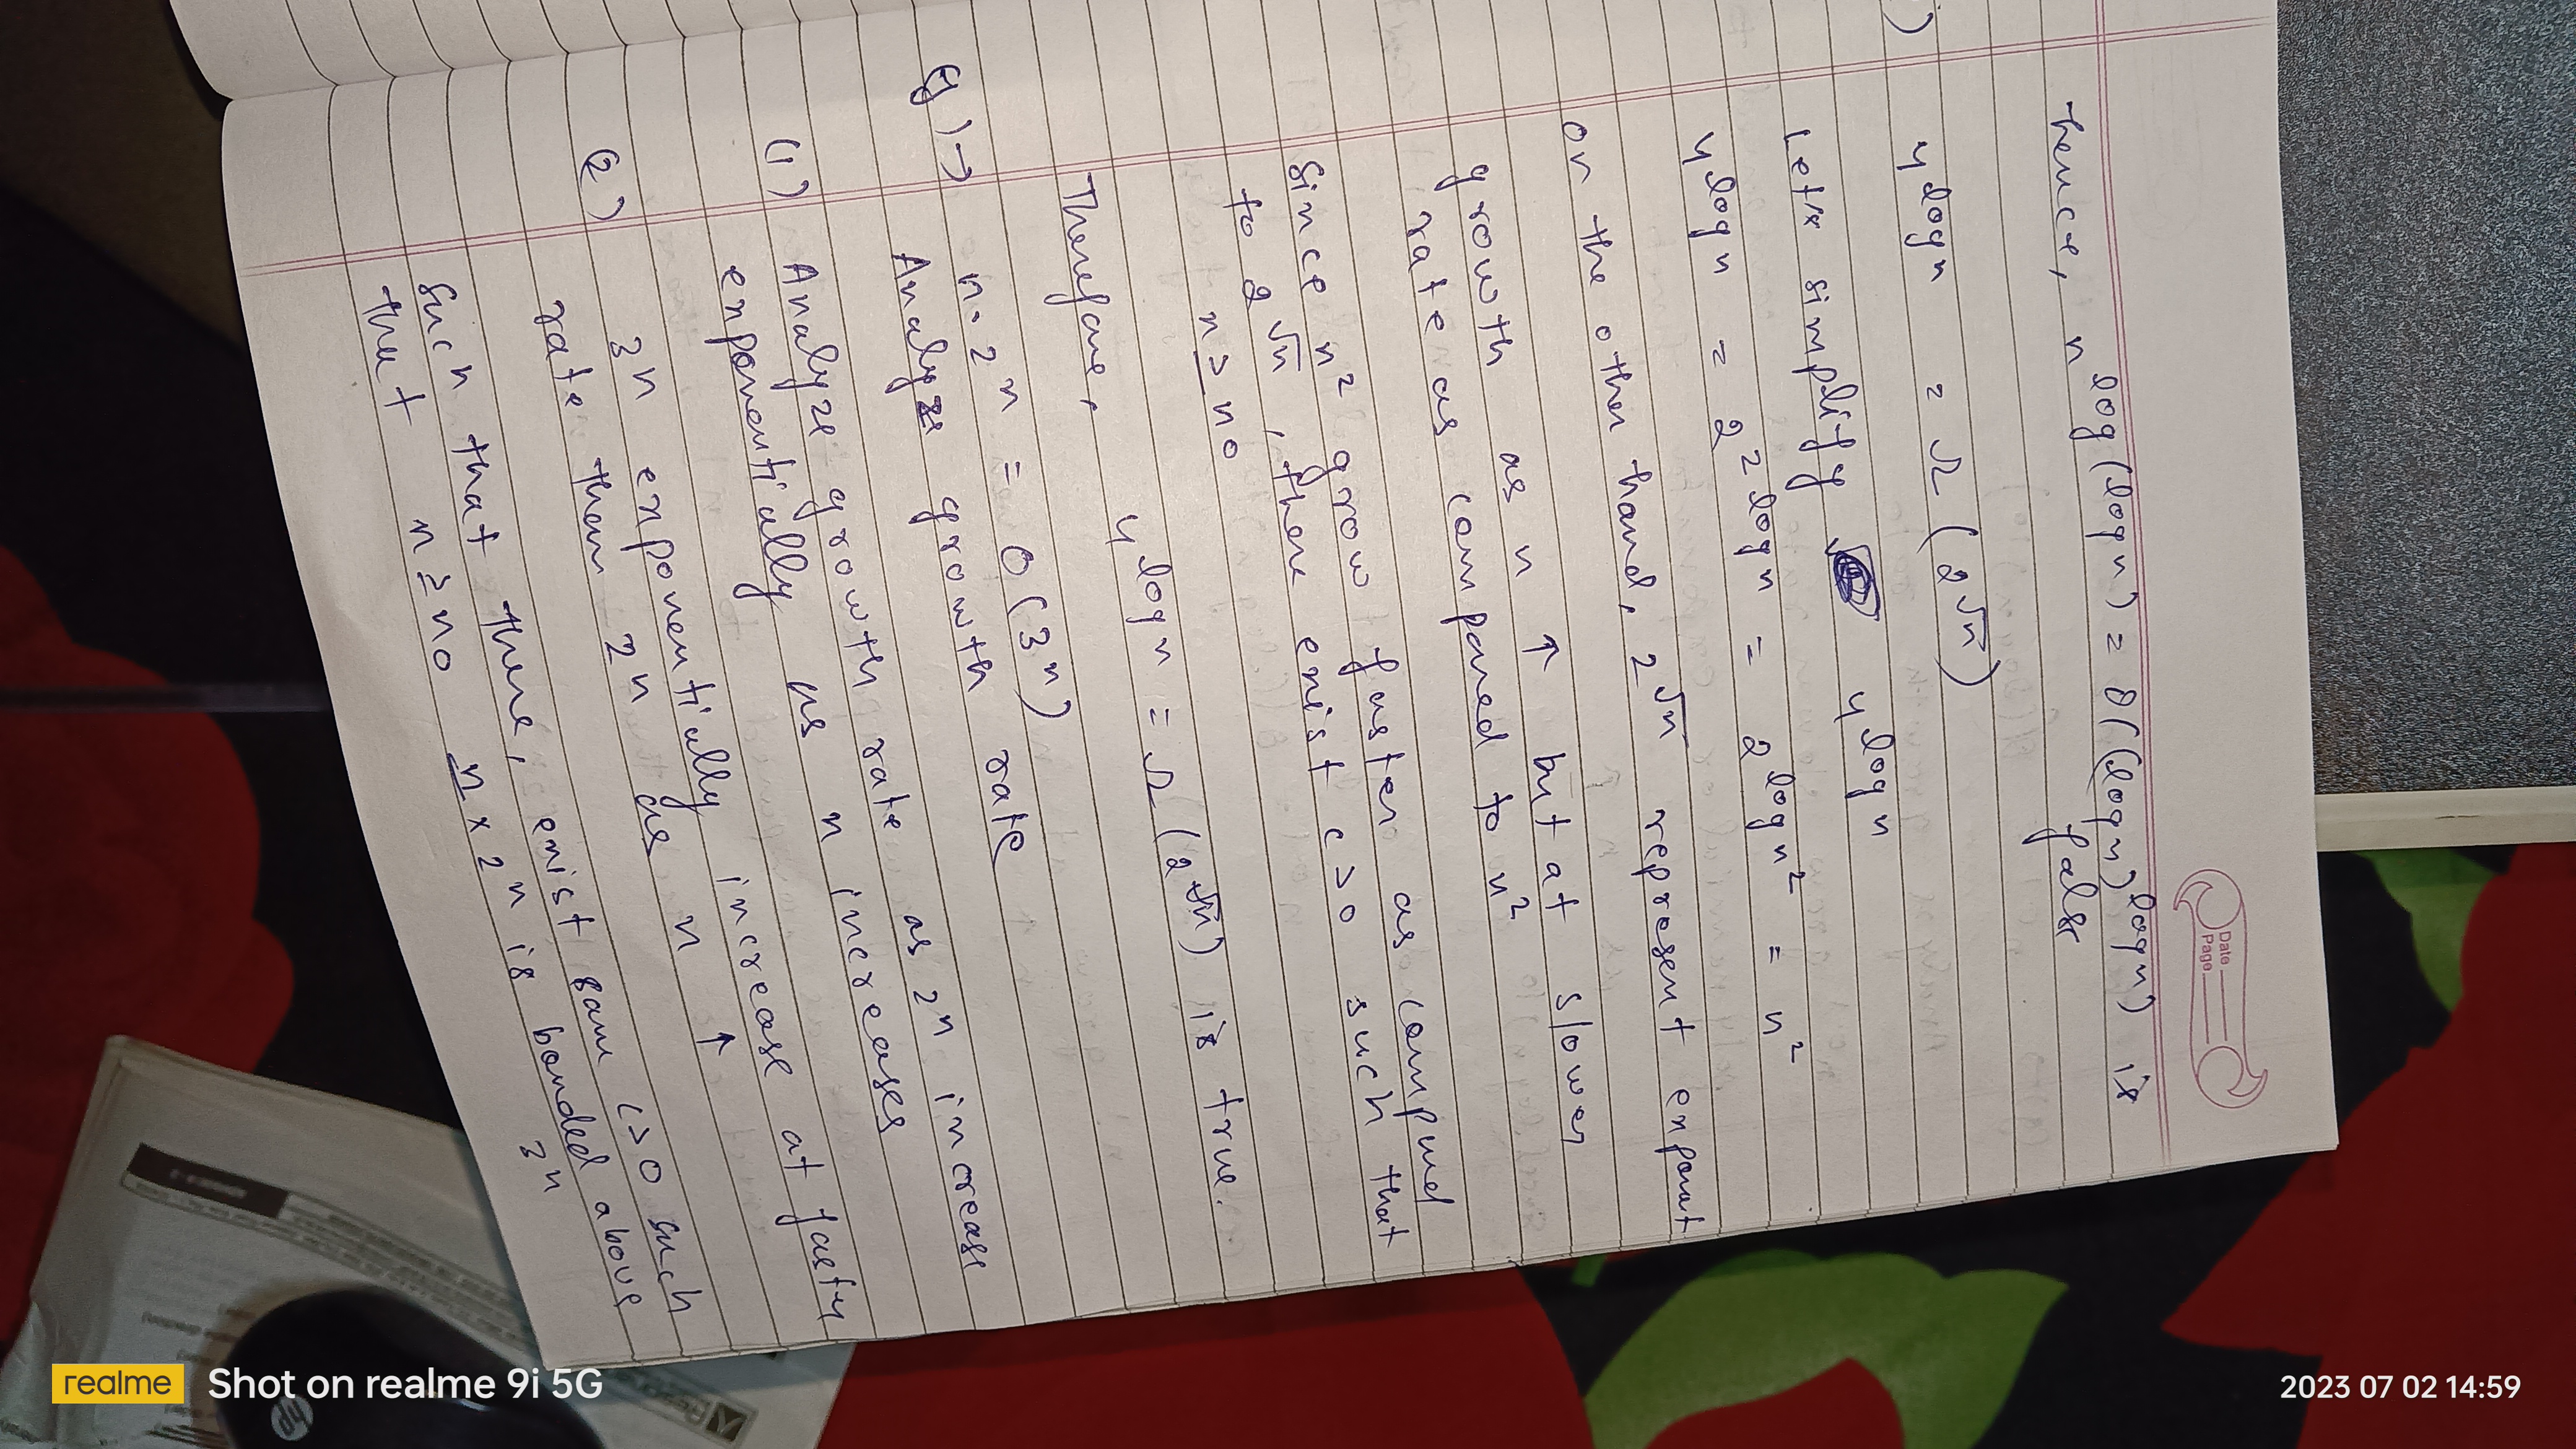 Date
Page
hence, n^log(logn) = θ((logn)^logn) is
false
) 4^logn = Ω (2^√n)
Let's simplify 4^logn
4^logn = 2^2logn = 2^logn² = n²
on the other hand, 2^√n represent
growth as n ↑ but at slower
rate as compared to n²
Since n² grow faster as
to 2^√n, there exist c>0 such that
n ≥ n0
Therefore, 4^logn = Ω (2^√n) is true.
g)→ n.2^n = O(3^n)
Analyze growth rate
(1) Analyze growth rate as 2^n increase
exponentially as n increases
(2) 3^n exponentially increase at
rate than 2^n as n ↑
Such that there, exist c>0 such
that n ≥ n0 n x 2^n is bonded above
3^n
2023 07 02 14:59
realme Shot on realme 9i 5G
hp